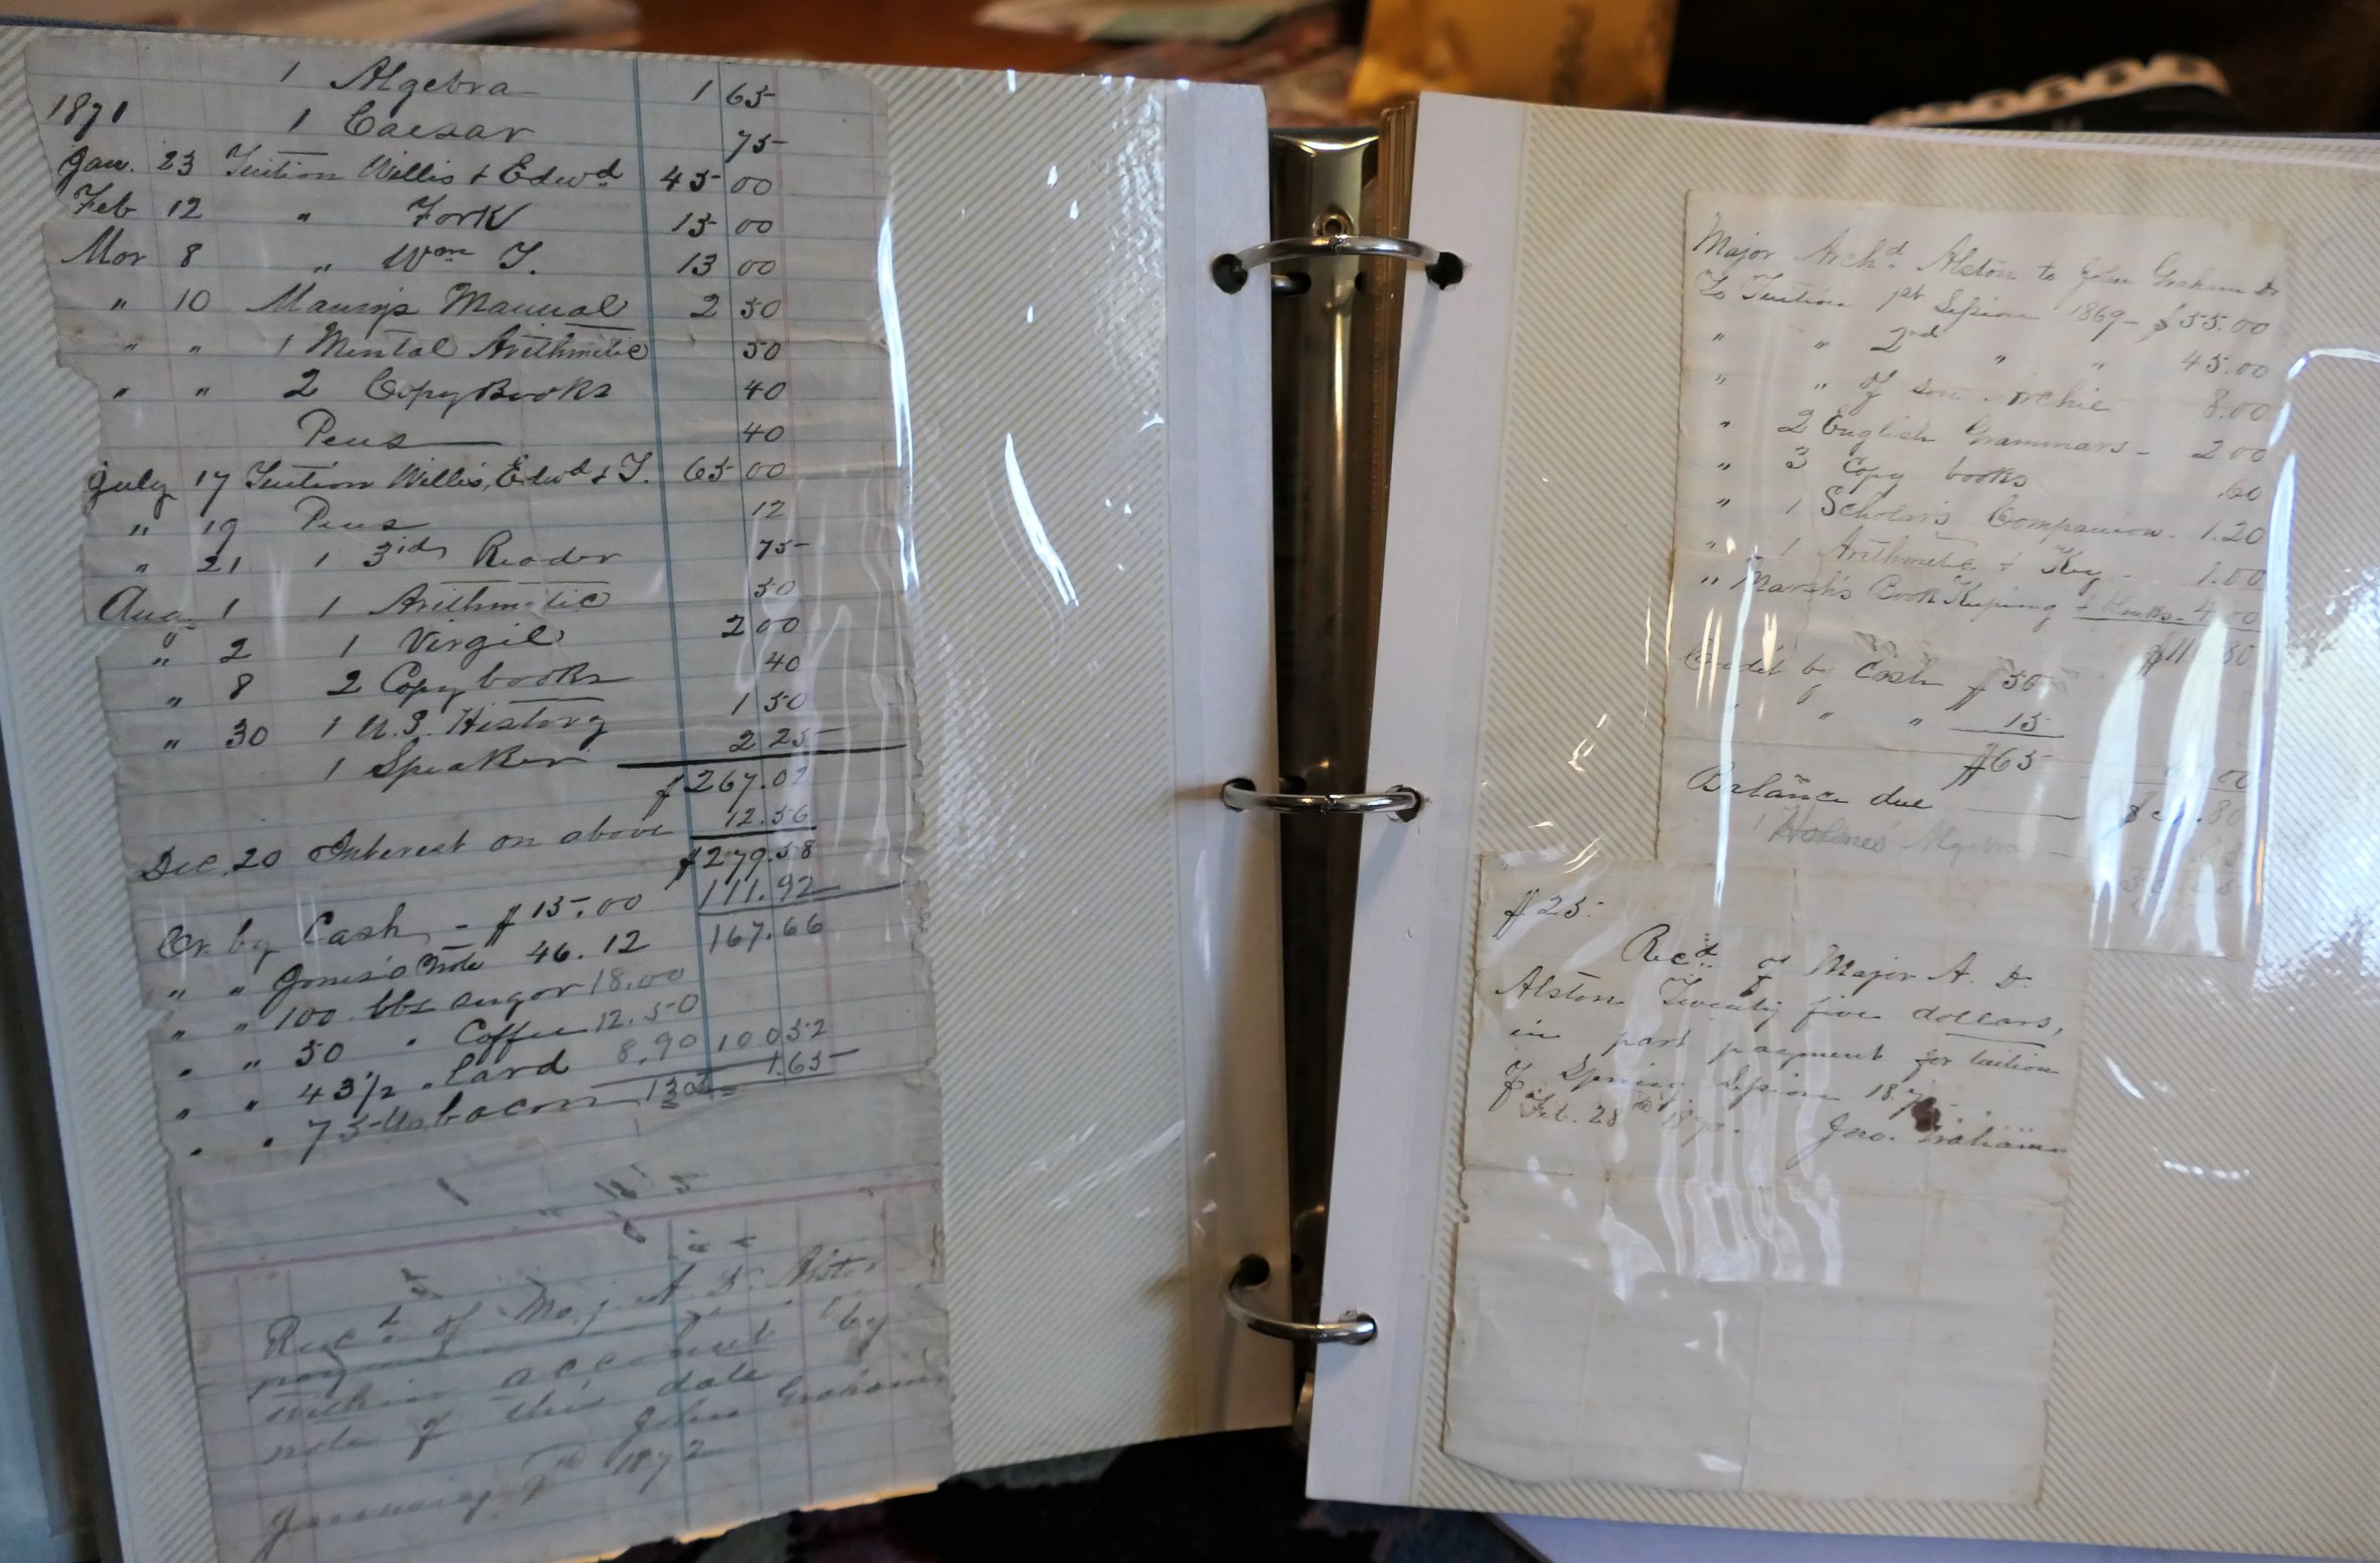 1 Algebra 1 65
1871 1 Caesar 75
Jan. 23 Tuition Willis & Edwd 45 00
Feb 12 " York 15 00
Mar 8 " Wm T. 13 00
" 10 Manual 2 50
" " 1 Mental Arithmetic 50
" " 2 Copy Books 40
Pens 40
July 17 Tuition Willis, Edwd & T. 65 00
" 19 Pens 12
" 21 1 3rd Reader 75
Aug 1 1 Arithmetic 50
" 2 1 Virgil 2 00
" 8 2 Copy books 40
" 30 1 U.S. History 1 50
1 Speaker 2 25
$267.02
Dec. 20 Interest on above 12.56
$279.58
111.92
Cr. by Cash - $15.00 167.66
" " Note 46.12
" " 100 lbs sugar 18.00
" " 50 " Coffee 12.50
" " 43 1/2 " Lard 8.90 100 52
" " 75 lbs bacon 1.65
Recd of Maj. A. D. Alston
within account by
note of this date
John Graham
January 1872
Major Archd Alston to John Graham Dr
To Tuition 1st Session 1869 - $55.00
" " 2nd " " 45.00
" " of son Archie 8.00
" 2 English Grammars - 2 00
" 3 Copy books .60
" 1 Scholar's Companion - 1.20
" 1 Arithmetic & Key - 1.00
" Marsh's Book Keeping & blanks - 4.00
Credit by Cash $50
" " " 15
$65
Balance due
1 Holmes' Algebra
$25.
Recd of Major A. D.
Alston Twenty five dollars,
in part payment for tuition
of Spring Session 1870.
Feb. 28th 1870. Jno. Graham